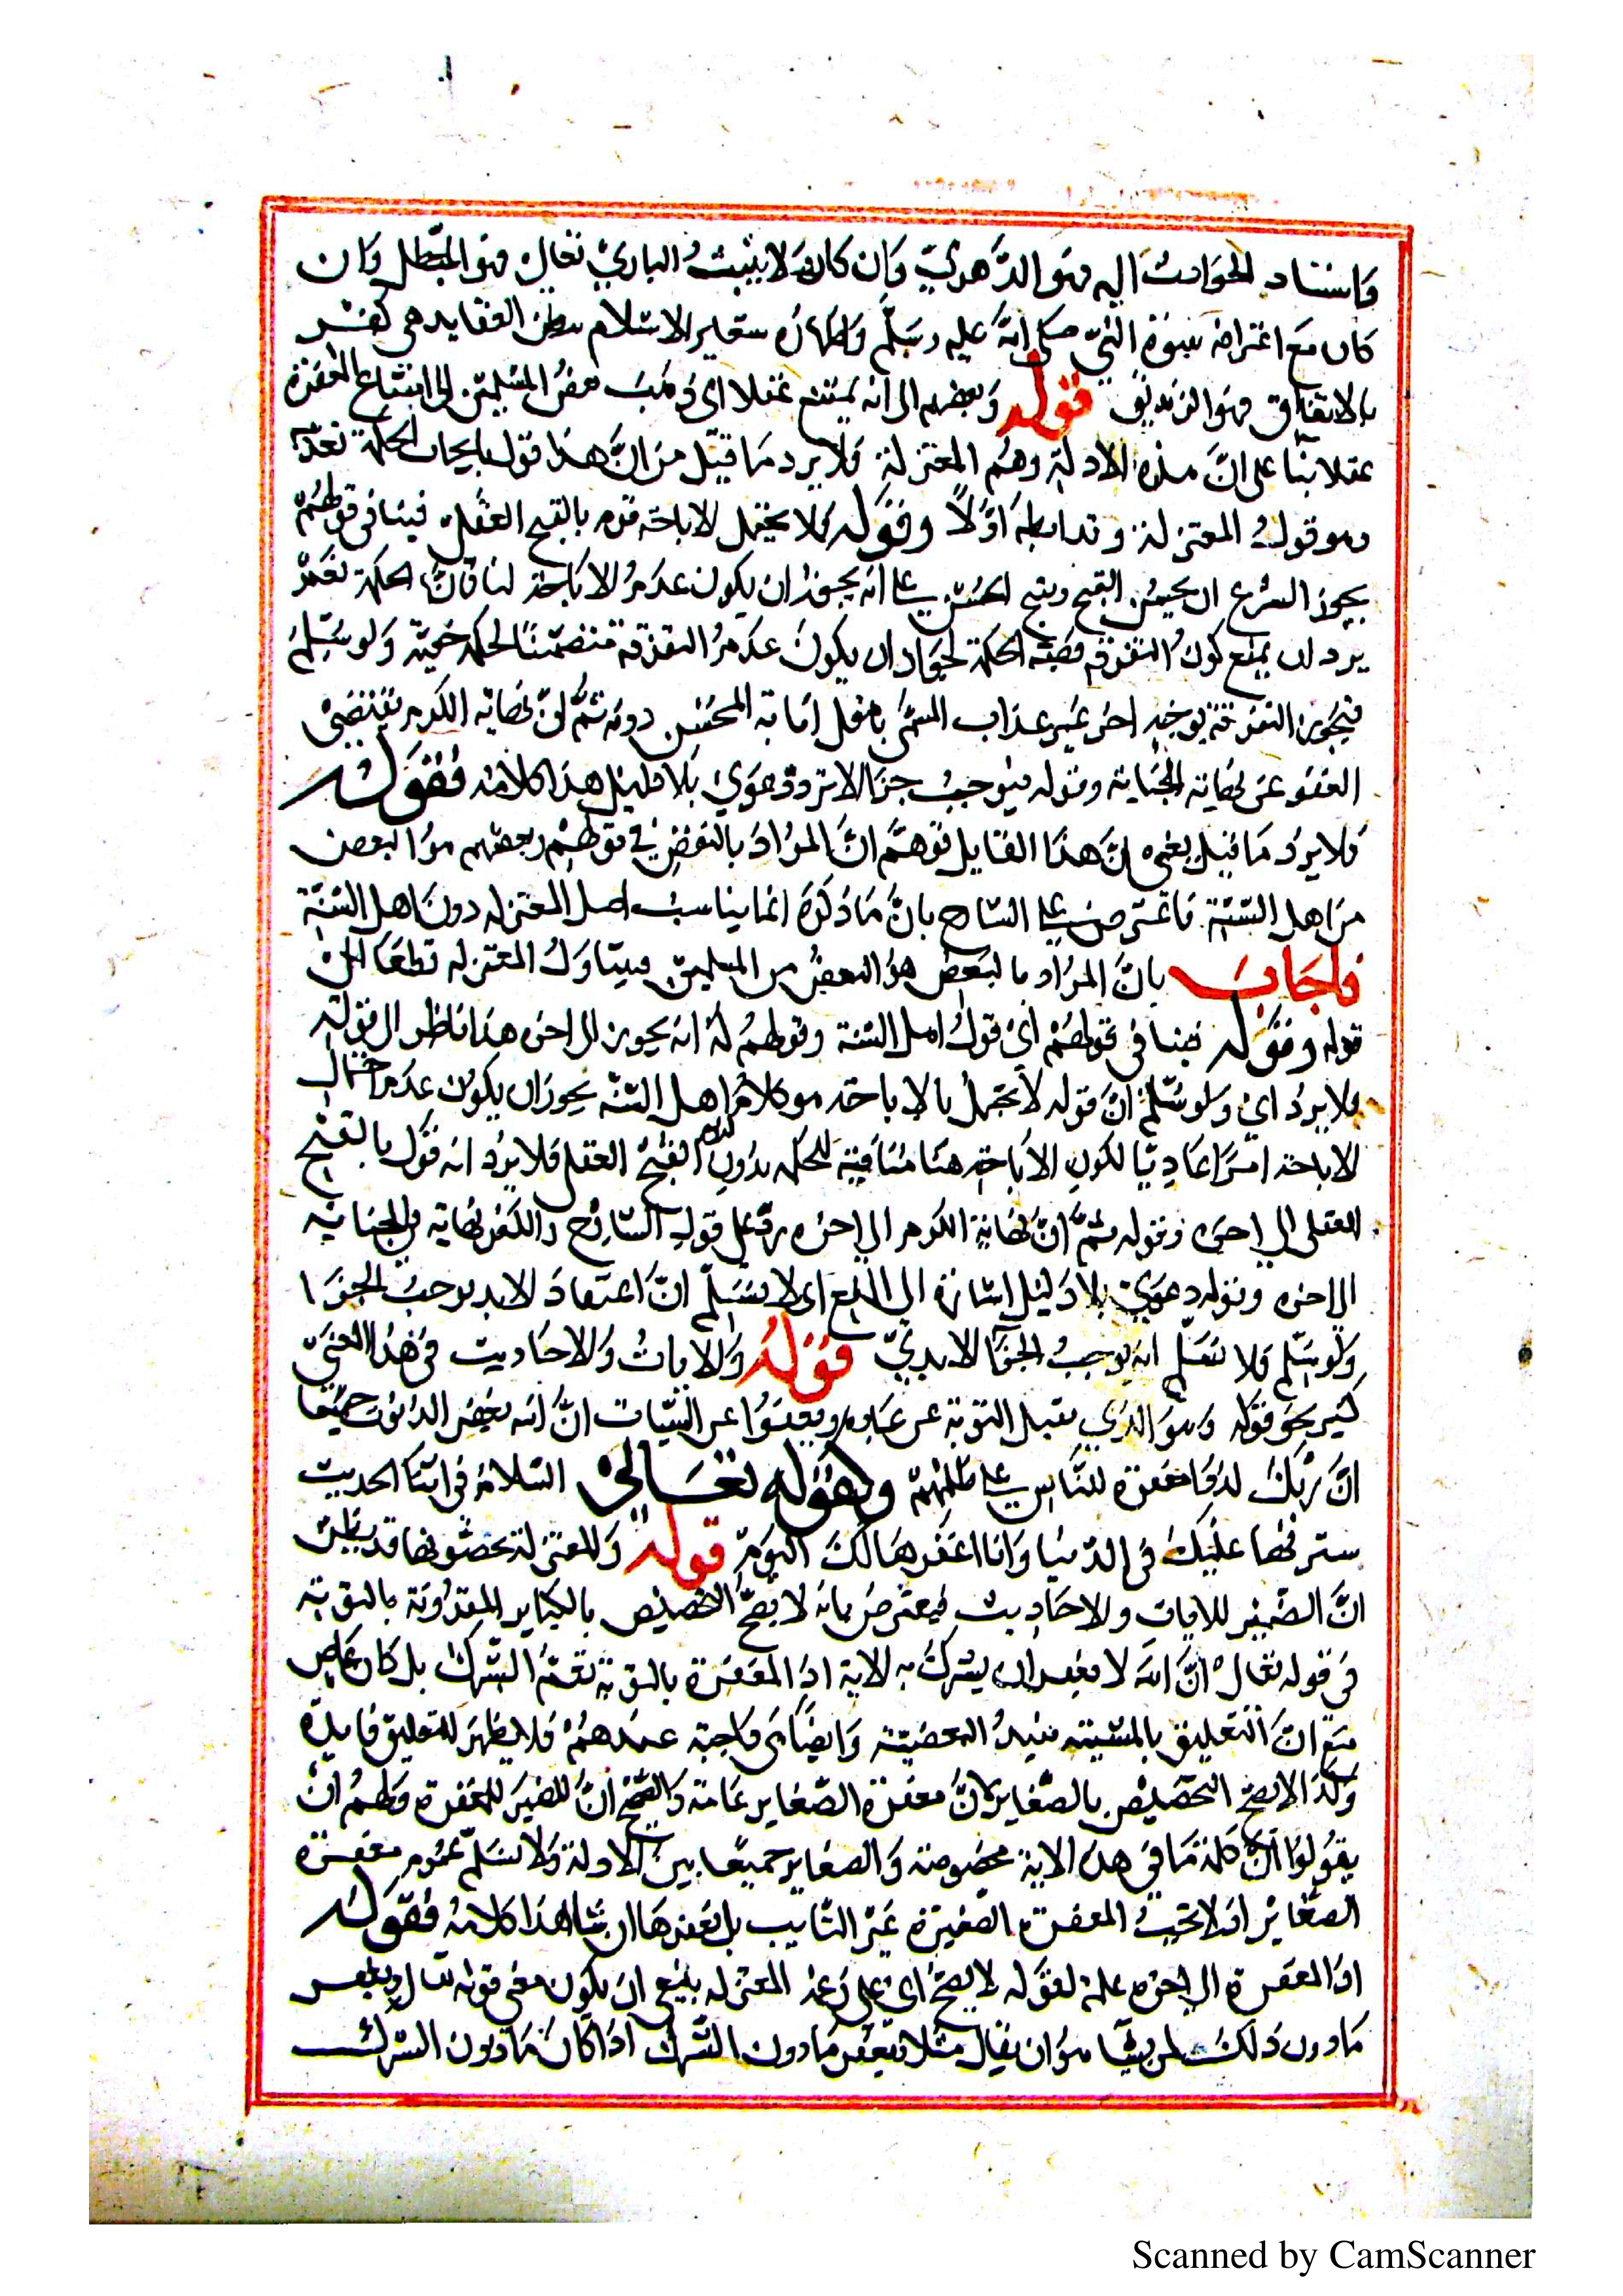 واسناد الحوادث اليه فهو الدهري وان كان لا يثبت الباري تعالى فهو المعطل وان
كان مع اعترافه بنبوة النبي صلى الله عليه وسلم واظهاره شعاير الاسلام يبطن العقايد هي كفر
بالاتفاق فهو الزنديق قوله وبعضهم الى انه يمتنع عقلا اى ذهب بعض المسلمين الى امتناع المغفرة
عقلا بنا على ان هذه الادلة وهم المعتزلة فلا يرد ما قيل من ان هذا قول بايجاب الحكمة تعذيبه
وهو قول المعتزلة وقد ابطله اولا وقوله لا يحتمل الاباحة قوم بالقبح العقلي فينافي قولهم
يجوز الشرع ان يحسن القبيح ويقبح الحسن على انه يجوز ان يكون عدم الاباحة لمنافاة الحكمة
يرد ان يمنع كون التفرقة قضية الحكمة لجواز ان يكون عدم التفرقة متضمنا لحكمة خفية ولو سلم
فيجوز التفرقة بوجه اخر غير عذاب المسئ مثل اثابة المحسن دونه ثم ان نهاية الكرم تقتضي
العفو عن نهاية الجناية وقوله فيوجب جزا الابد دعوي بلا دليل هذا كلامه فقوله
فلا يرد ما قيل يعني ان هذا القايل توهم ان المراد بالبعض في قولهم وبعضهم هو البعض
من اهل السنة فاعترض على الشارح بان ما ذكره انما يناسب اصل المعتزلة دون اهل السنة
فاجاب بان المراد بالبعض هو البعض من المسلمين فيتناول المعتزلة قطعا
قوله وقوله فينافي قولهم أي قول اهل السنة وقولهم له انه يجوز الى اخره هذا ناظر الى قوله
ولا يرد اي ولو سلم ان قوله لا يحتمل الاباحة هو كلام اهل السنة يجوز ان يكون عدم احتمال
الاباحة امرا عاديا لكون الاباحة هنا منافية للحكمة بدون لزوم القبح العقلي فلا يرد انه قول بالقبح
العقلى الى اخره وقوله ثم ان نهاية الكرم الى اخره رد على قول الشارح والكفر نهاية في الجناية
الى اخره وقوله دعوي بلا دليل اشارة الى المنع اى لا نسلم ان اعتقاد الابد يوجب الجزا
ولو سلم فلا نسلم انه يوجب الجزا الابدي قوله والايات والاحاديث في هذا المعني
كثير نحو قوله وهو الذي يقبل التوبة عن عباده ويعفوا عن السيئات ان الله يغفر الذنوب جميعا
ان ربك لذو مغفرة للناس على ظلمهم وكقوله تعالى السلام في اثنا الحديث
سترتها عليك في الدنيا وانا اغفرها لك اليوم قوله والمعتزلة يخصونها قد يظن
ان الضمير للايات والاحاديث فيعترض بانه لا يصح التخصيص بالكباير المقرونة بالتوبة
في قوله تعالى ان الله لا يغفر ان يشرك به الاية اذ المغفرة بالتوبة تعم الشرك بل كل عاص
مع ان التعليق بالمشيئة يفيد البعضية وايضا هي واجبة عندهم فلا يظهر للتعليق فايدة
وكذا لا يصح التخصيص بالصغاير لان مغفرة الصغاير عامة والصحيح ان الضمير للمغفرة ولهم ان
يقولوا ان كلمة ما في هذه الاية مخصوصة والصغاير جميعا بين الادلة ولا نسلم عموم مغفرة
الصغاير اذ لا تجب المغفرة الصغيرة غير التايب بل يغفرها ان شا هذا كلامه فقوله
اذ المغفرة الى اخره علة لقوله لا يصح اى على زعم المعتزلة يمنع ان يكون معنى قوله تعالى ويغفر
ما دون ذلك لمن يشا هو ان يقال مثلا يغفر ما دون الشرك اذا كان ما دون الشرك
Scanned by CamScanner